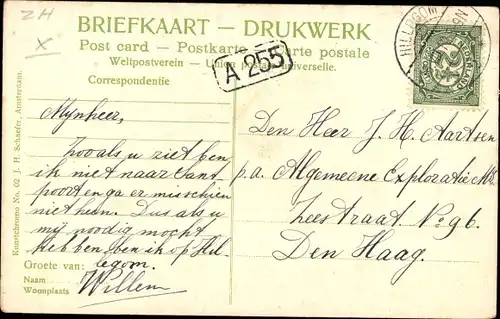 ZH
X
BRIEFKAART — DRUKWERK
Post card — Postkarte — Carte postale
Weltpostverein — Union postale universelle.
Correspondentie
A 255
HILLEGOM
NEDERLAND
Kunstchromo No. 02 J. H. Schaefer, Amsterdam.
Mynheer,
Zooals u ziet ben
ik niet naar Sant
poort en ga er misschien
niet heen. Dus als u
mij noodig mocht
hebben, ben ik op Hil-
legom.
Groete van:
Naam
Woonplaats
Willem
Den Heer J. H. Aartsen
p.a. Algemeene Exploratie Mij
Zeestraat No 96.
Den Haag.